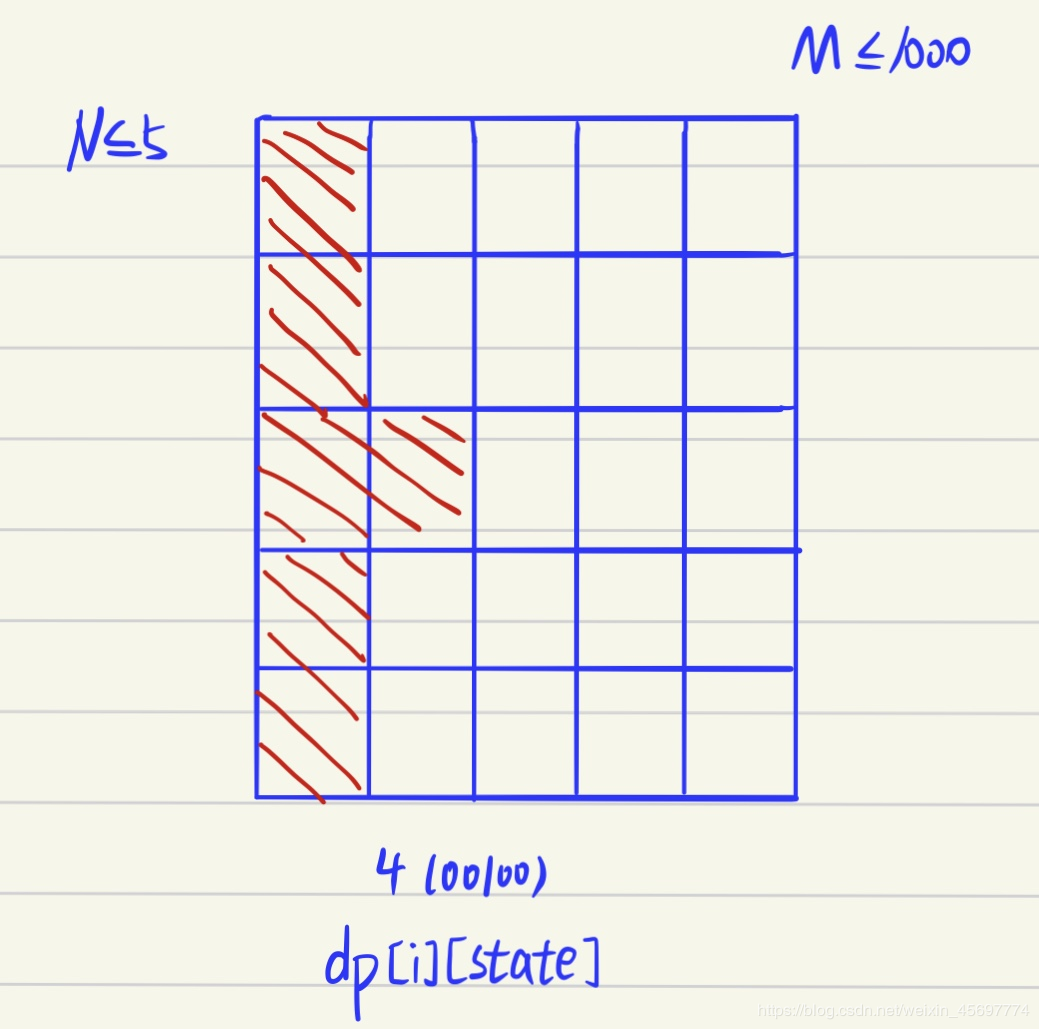 M ≤ 1000
N ≤ 5
4 (00100)
dp[i][state]
https://blog.csdn.net/weixin_45697774